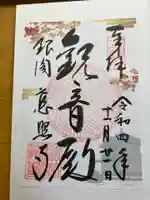 奉拝
令和四年
十一月廿一日
観音殿
銀閣
慈照寺